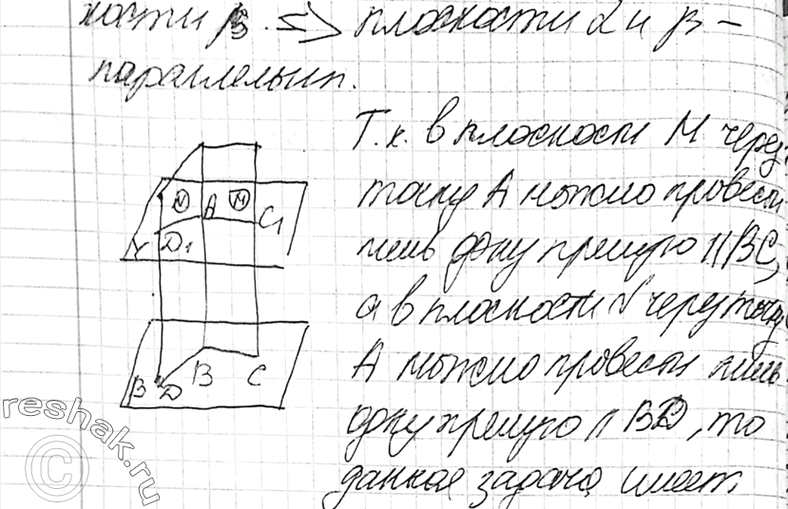 кости β. => плоскости α и β -
параллельны.
Т.к. в плоскости M через
точку A можно провести
лишь одну прямую ||BC,
а в плоскости N через точку
A можно провести лишь
одну прямую || BD, то
данная задача имеет
N A M C₁
α D₁
β D B C
reshak.ru
©